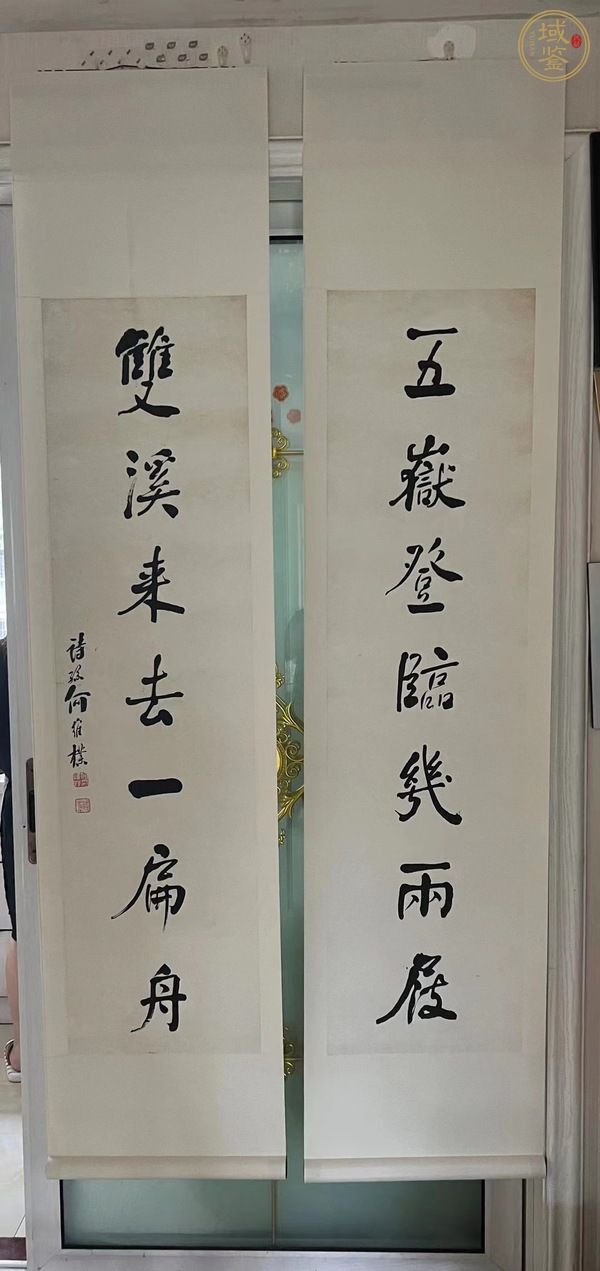 五嶽登臨幾兩屐
雙溪来去一扁舟
詩孫何維樸
域鉴